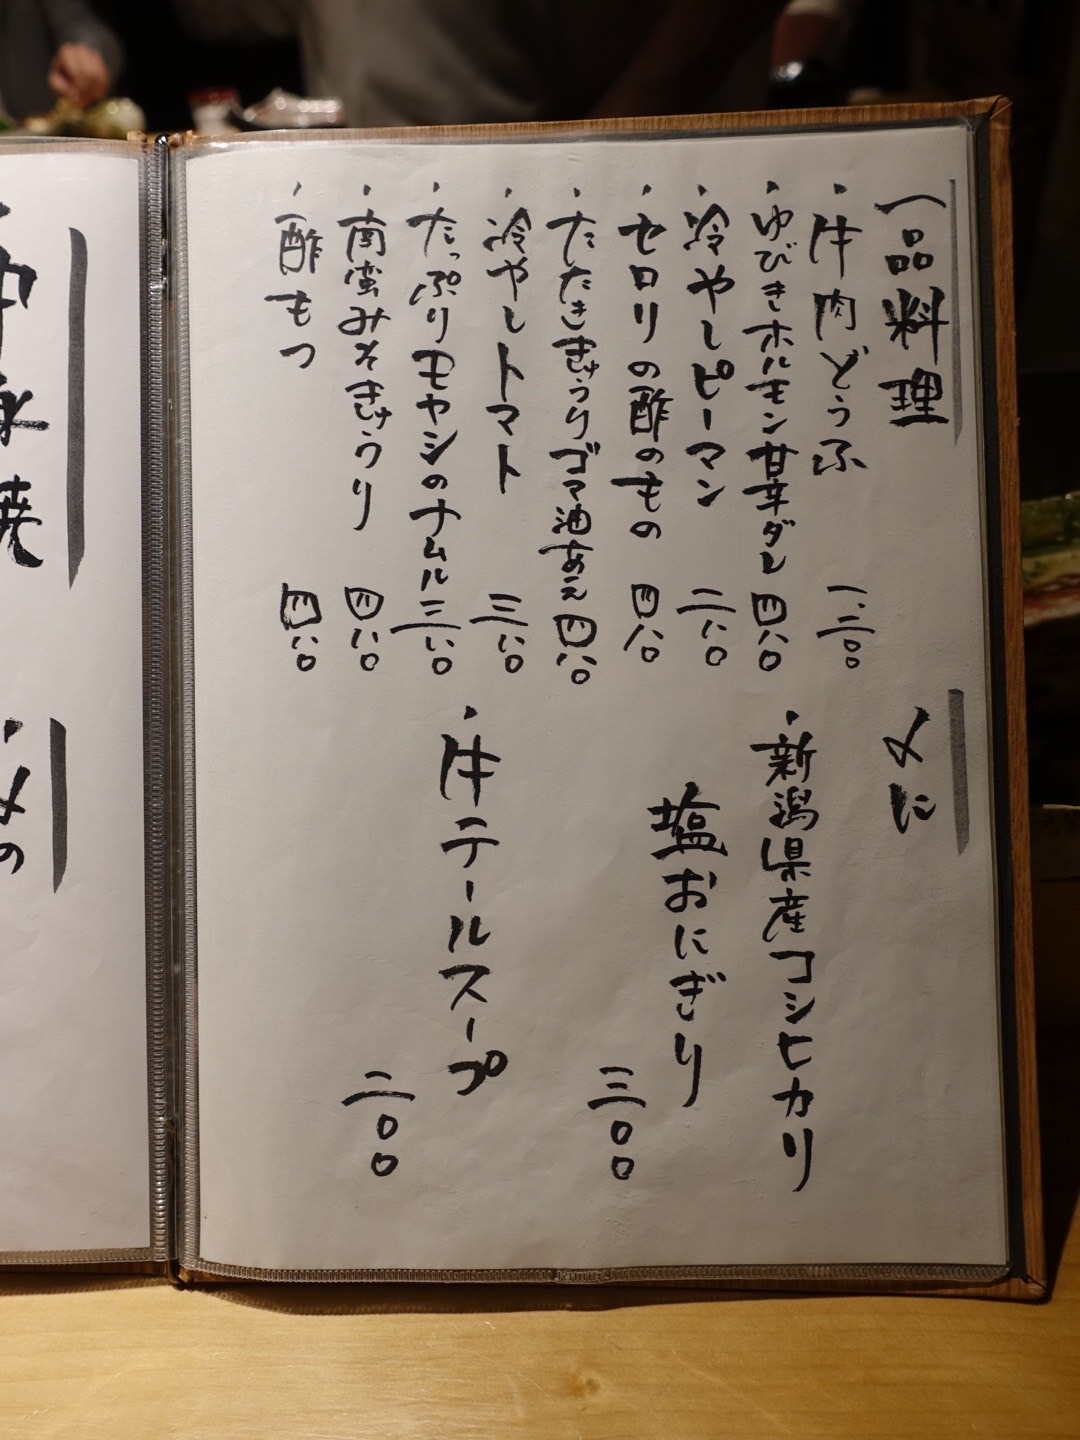 一品料理
・牛肉どうふ 一、二〇〇
・ゆびきホルモン甘辛ダレ 四八〇
・冷やしピーマン 二八〇
・セロリの酢のもの 四八〇
・たたききゅうりゴマ油あえ 四八〇
・冷やしトマト 三八〇
・たっぷりモヤシのナムル 三八〇
・南蛮みそきゅうり 四八〇
・酢もつ 四八〇
〆に
・新潟県産コシヒカリ
塩おにぎり
三〇〇
・牛テールスープ
二〇〇
焼
〆の